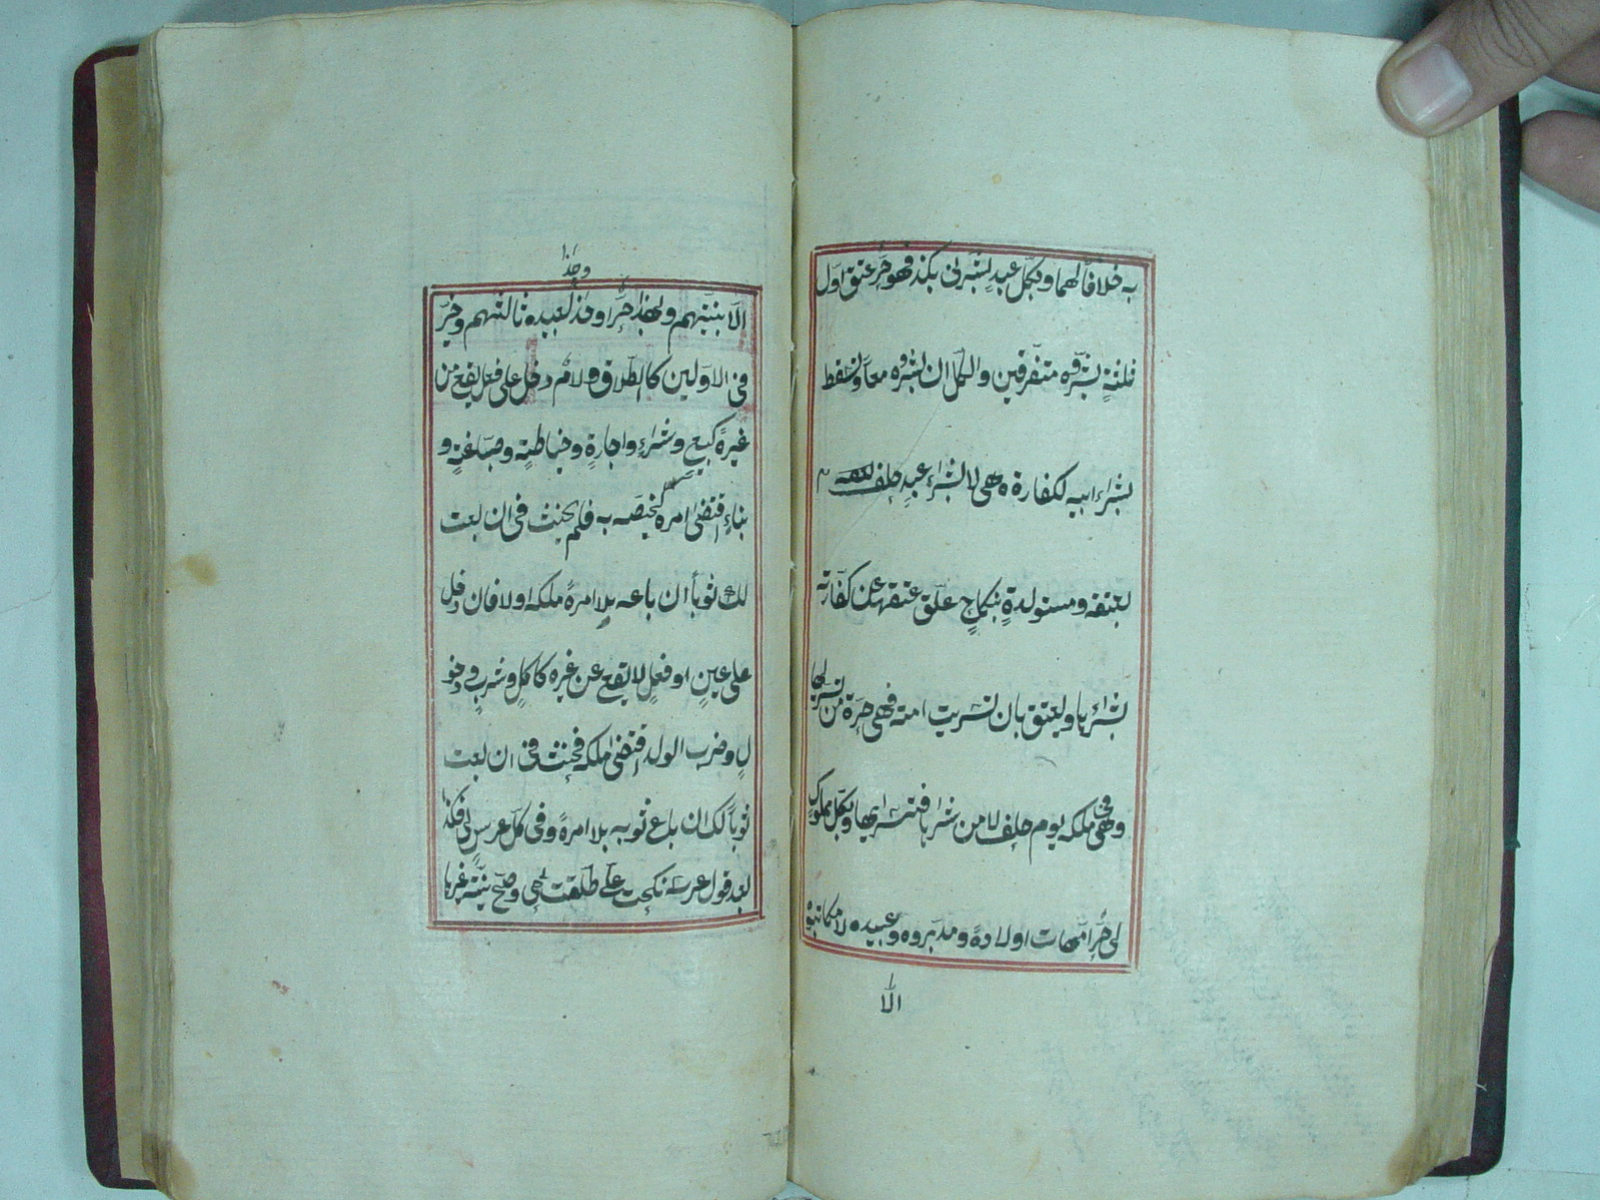 به خلافا لهما وبكل عبد بشرنى بكذا فهو حر عتق اول
ثلثة بشروه متفرقين والكل ان بشروه معا وتسقط
بشراء ابيه لكفارة هى لا بشراء عبد حلف
بعتقه ومستولدة بنكاح علق عتقها عن كفارته
بشرائها ويعتق بان تسريت امة فهى حرة من تسراها
وهى فى ملكه يوم حلف لا من شراها فتسراها وبكل مملوك
لى حر امهات اولاده ومدبروه وعبيده لا مكاتبوه
الا
وهذا
الا بنيتهم وبهذا حر او هذا وهذا لعبيده ثالثهم وخير
فى الاولين كالطلاق ولام دخل على فعل يقع عن
غيره كبيع وشراء واجارة وخياطة وصباغة و
بناء اقتضى امره ليخصه به فلم يحنث فى ان بعت
لك ثوبا ان باعه بلا امره ملكه او لا فان دخل
على عين او فعل لا يقع عن غيره كاكل وشرب ودخو
ل وضرب الولد اقتضى ملكه فحنث فى ان بعت
ثوبا لك ان باع ثوبه بلا امره وفى كل عرس لى فكذا
بعد قول عرسه نكحت على طلقت هى وصح نية غيرها